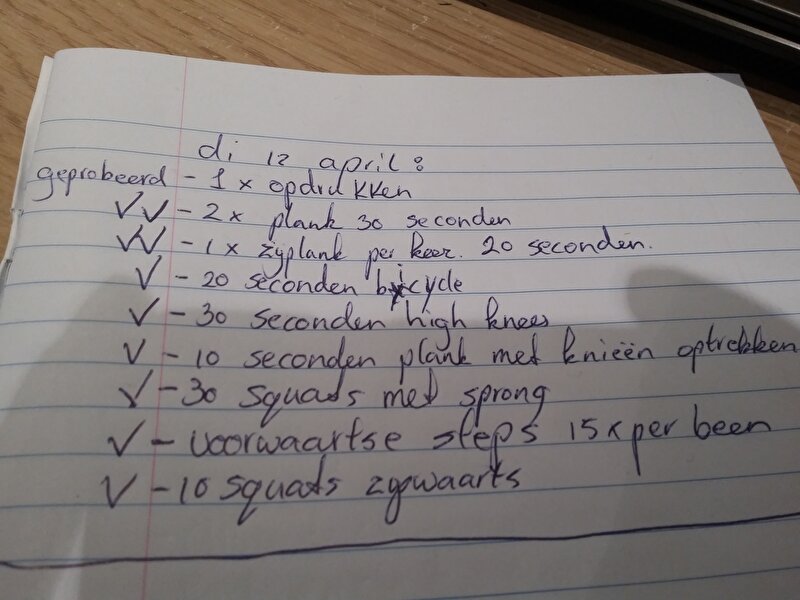 di 12 april:
geprobeerd - 1 x opdrukken
✓✓ - 2 x plank 30 seconden
✓✓ - 1 x zijplank per keer. 20 seconden.
✓ - 20 seconden bicycle
✓ - 30 seconden high knees
✓ - 10 seconden plank met knieën optrekken
✓ - 30 squats met sprong
✓ - voorwaartse steps 15x per been
✓ - 10 squats zijwaarts